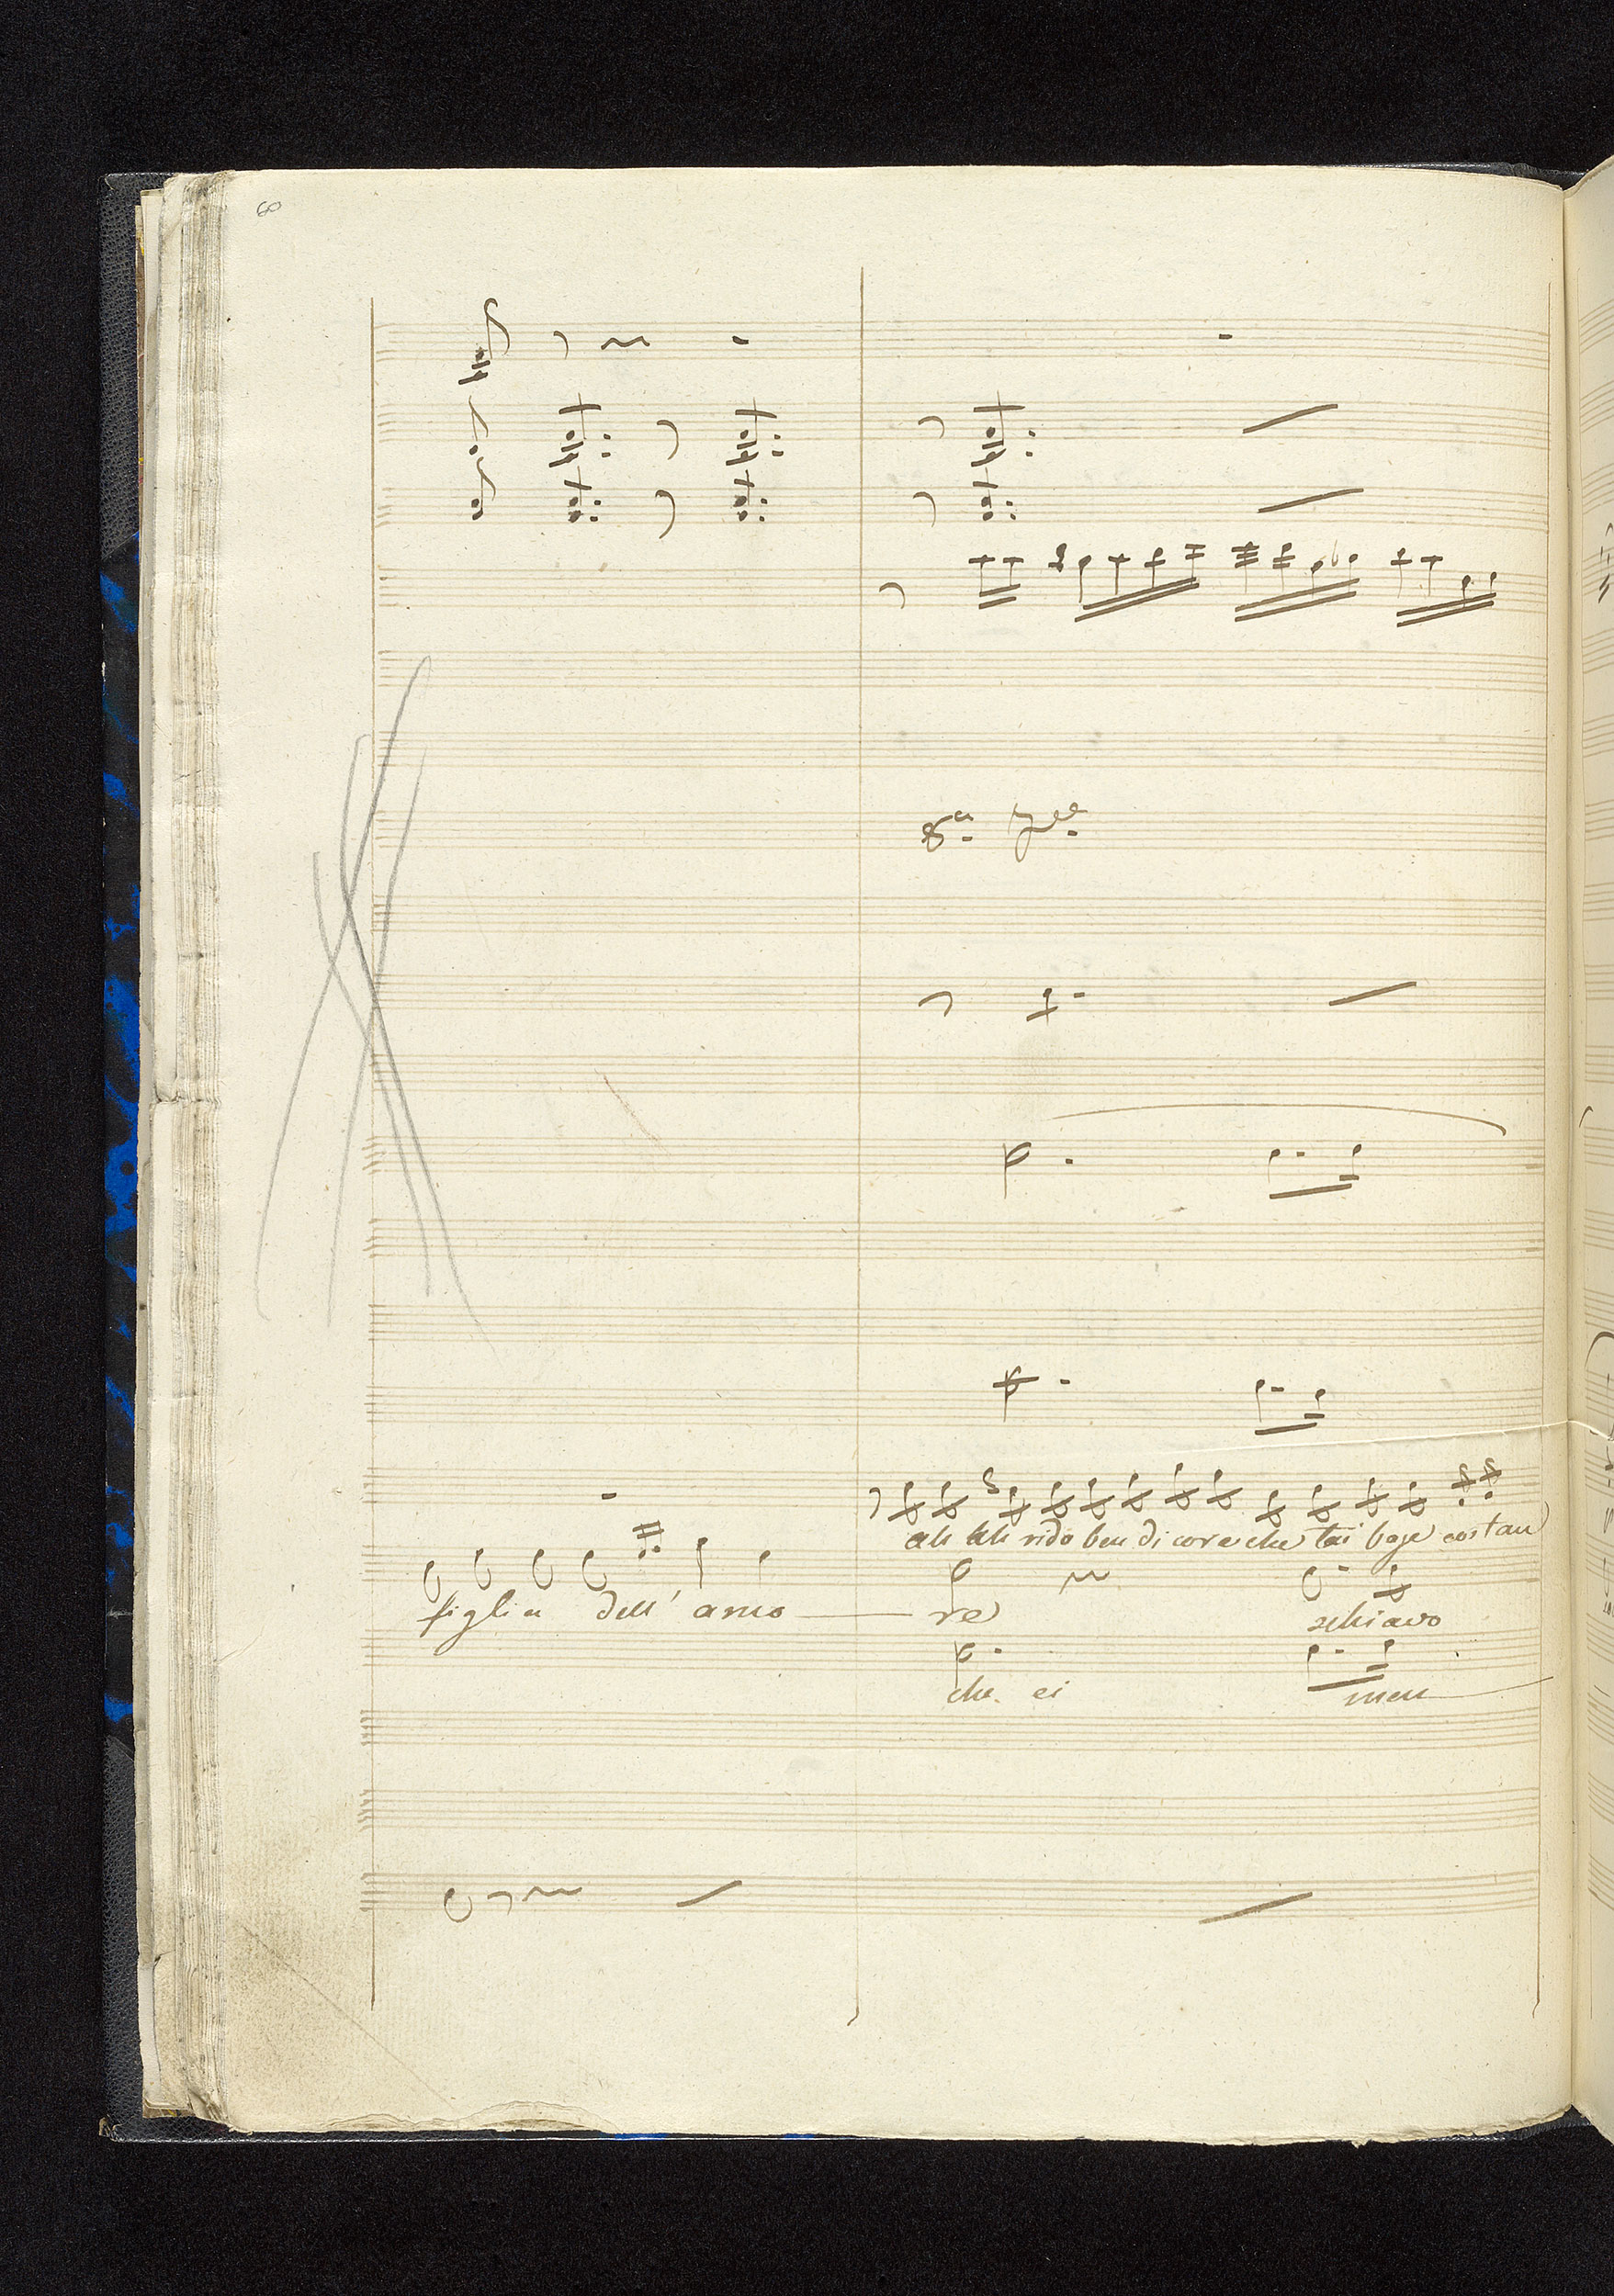 60
8ª
ah ah rido ben di core che tai baje costan
figlia dell' amo re schiavo
che ei men